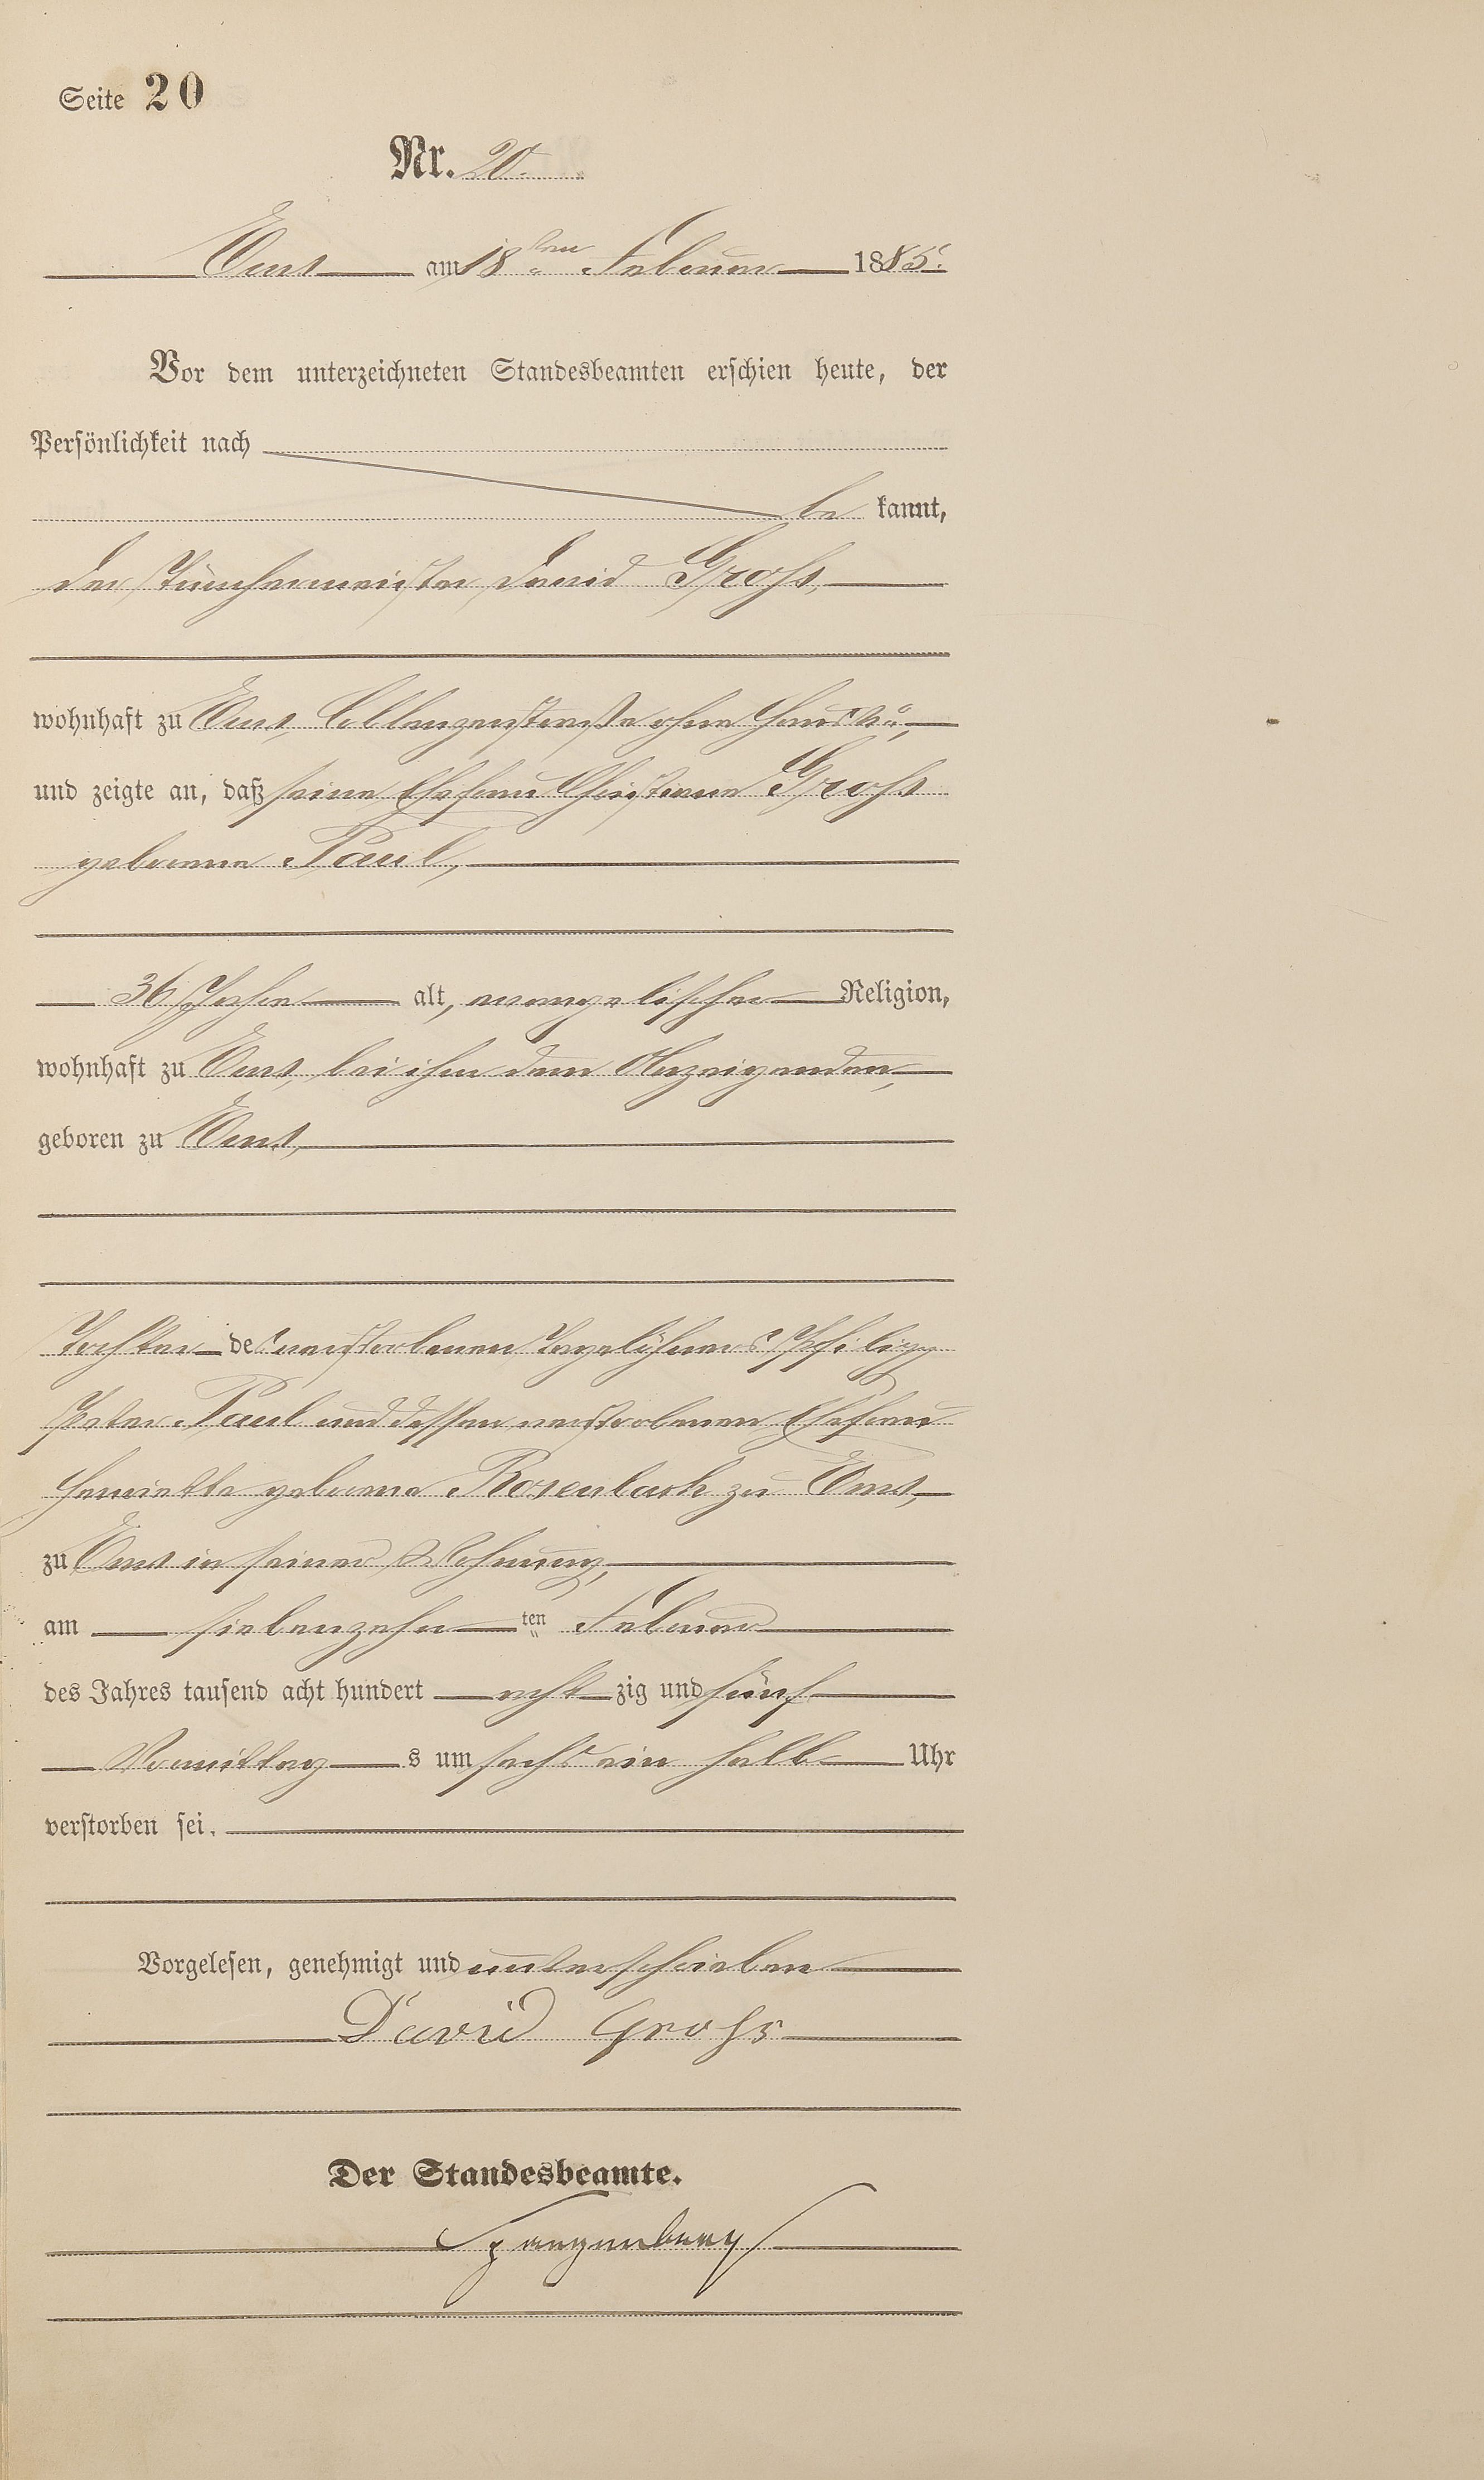 Seite 20
Nr. 20.
Ems am 18ten Februar 1885.
Vor dem unterzeichneten Standesbeamten erschien heute, der
Persönlichkeit nach
be kannt,
der Tünchermeister David Groß,
wohnhaft zu Ems, Coblenzerstraße ohne Haus No,
und zeigte an, daß seine Ehefrau Christiane Groß
geborene Paul,
36 Jahre alt, evangelischer Religion,
wohnhaft zu Ems, bei ihm dem Anzeigenden,
geboren zu Ems,
Tochter des verstorbenen Tagelöhners Philipp
Peter Paul und dessen verstorbenen Ehefrau
Henriette geborene Rosenbach zu Ems,
zu Ems in seiner Wohnung,
am siebenzehn ten Februar
des Jahres tausend acht hundert acht zig und fünf
Vormittag s um sechs ein halb Uhr
verstorben sei.
Vorgelesen, genehmigt und unterschrieben
David Groß
Der Standesbeamte.
Spangenberg